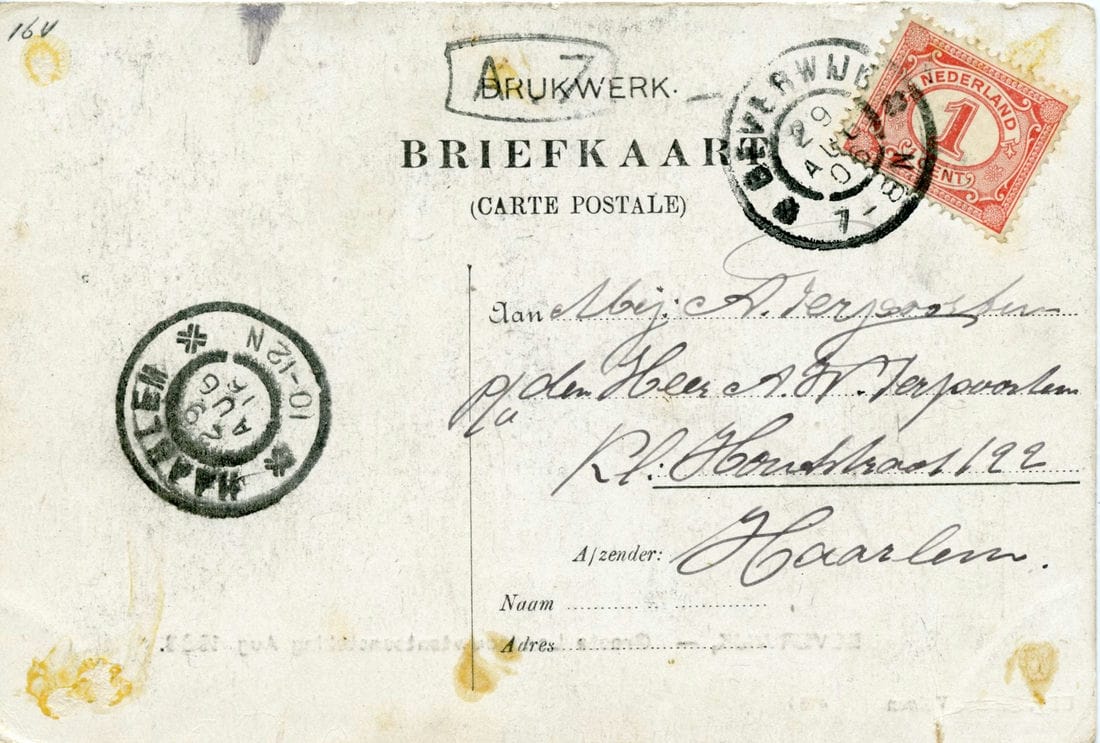 164
A. 7
DRUKWERK.
BRIEFKAART
(CARTE POSTALE)
BEVERWIJK
29
AUG
7-8 N
NEDERLAND
1
CENT
HAARLEM
10-12 N
29
AUG
Aan Mej: A. Terpoorten
p/a den Heer A. W. Terpoorten
Kl: Houtstraat 122
Haarlem.
Afzender:
Naam
Adres